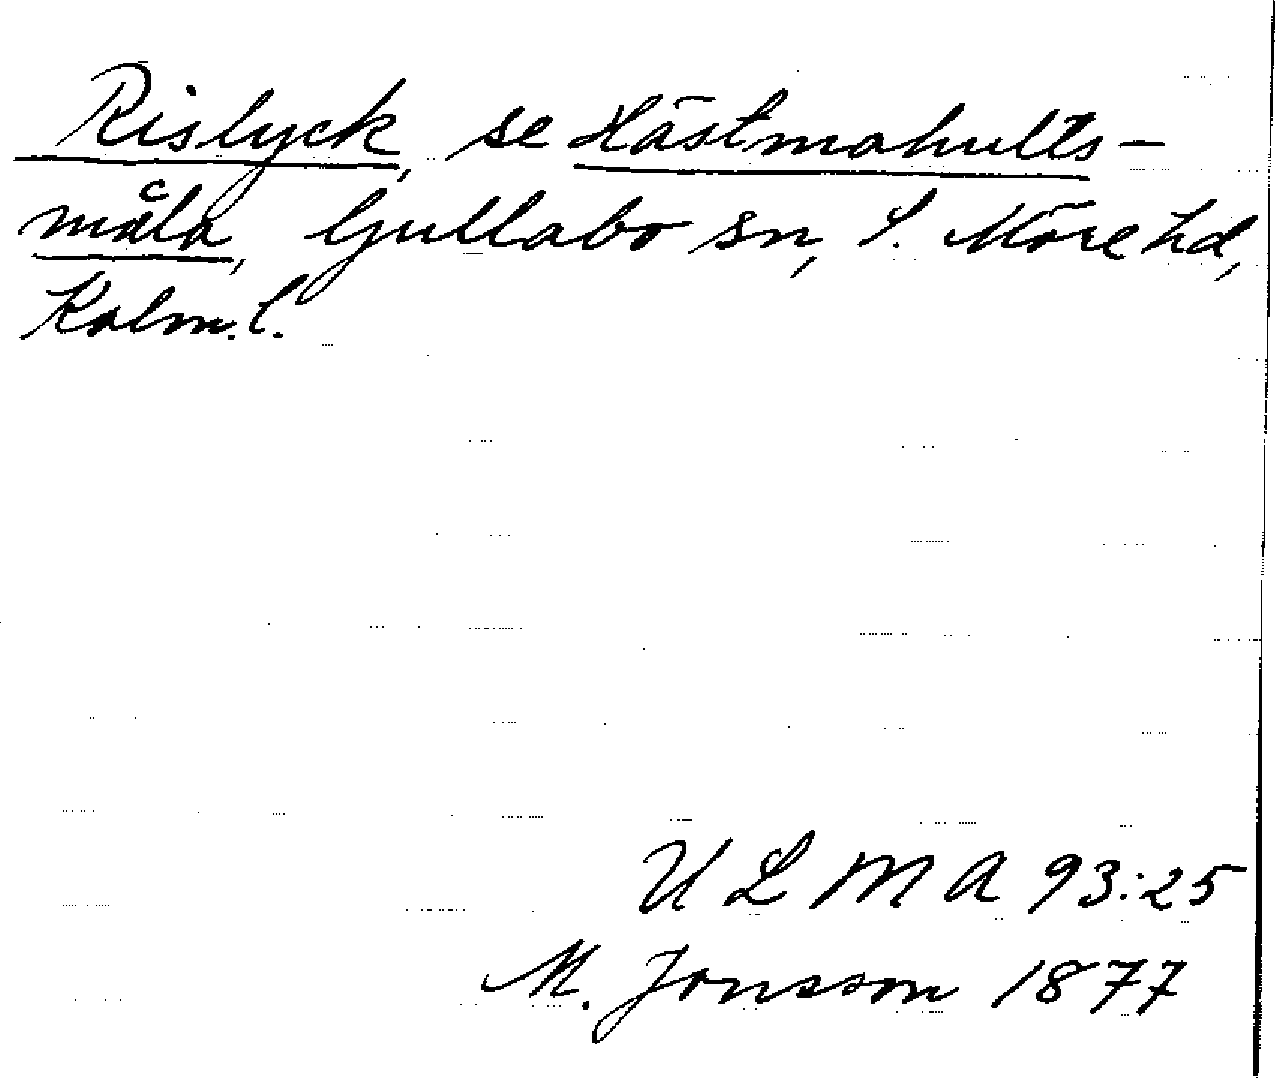 Rislyck, se Hästmahults-
måla, Gullabo sn, S. Möre hd,
Kalm. l.
U L M A 93:25
M. Jonsson 1877